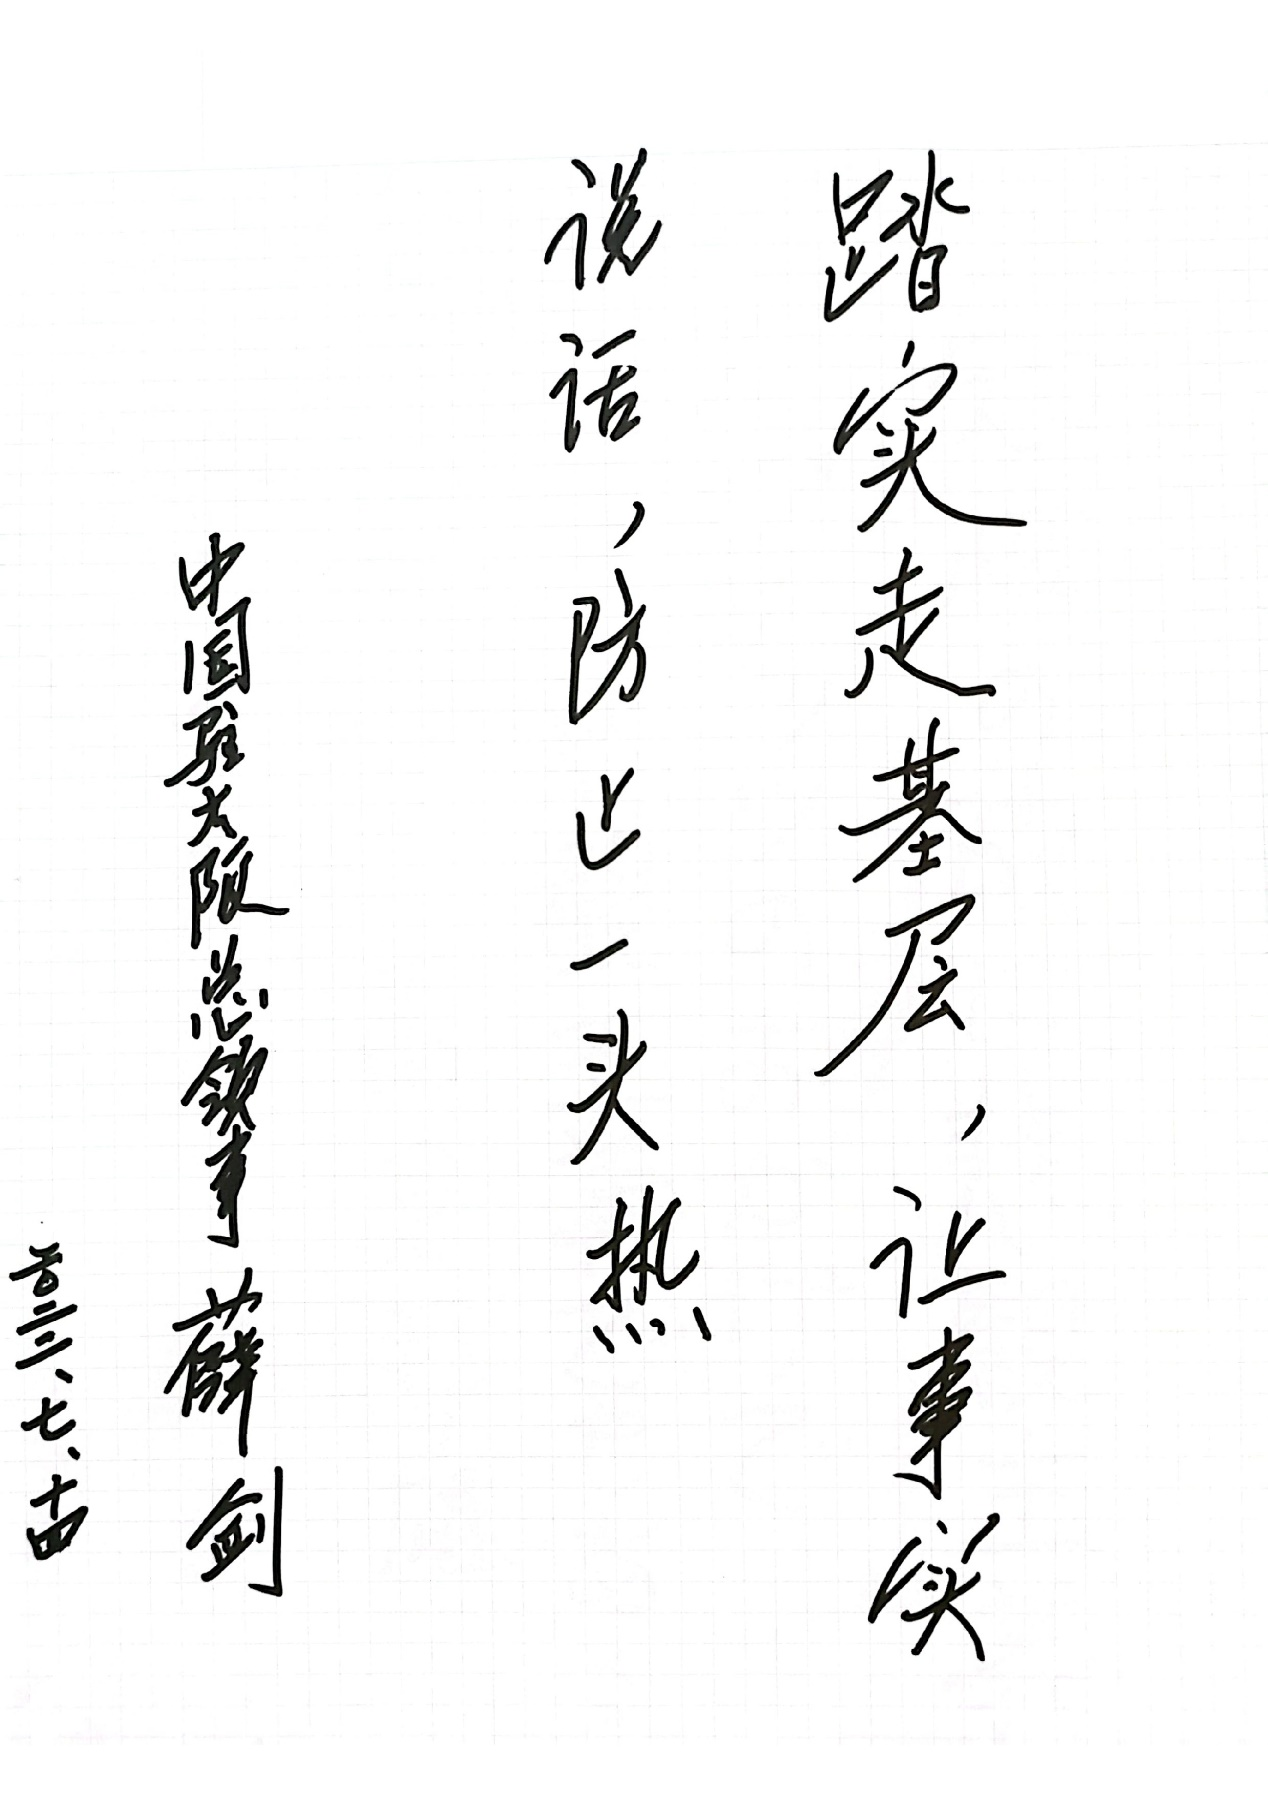 踏实走基层，让事实
说话，防止一头热
中国驻大阪总领事 薛剑
二〇二二、七、十四